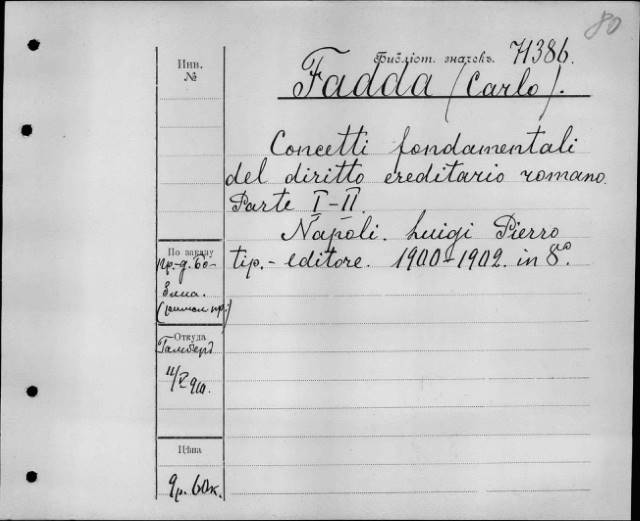 80
Библіот. значекъ. 71386.
Инв.
№
Fadda (Carlo).
Concetti fondamentali
del diritto ereditario romano.
Parte I-II.
Napoli. Luigi Pierro
tip.- editore. 1900-1902. in 8º.
По заказу
пр-д.
Откуда
11/V 910.
Цѣна
9р. 60к.